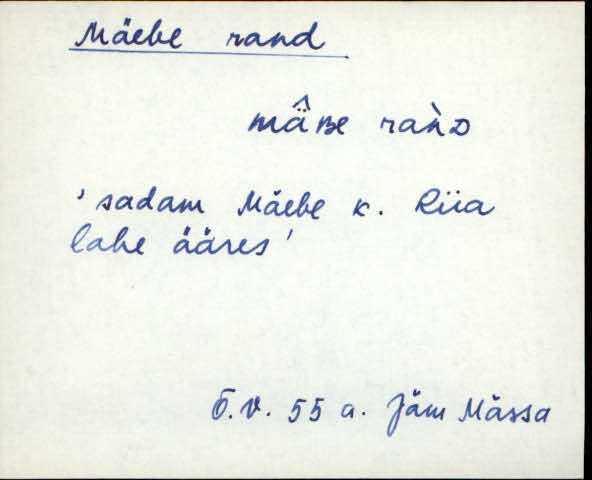 Mäebe rand
mä̂ʙe rar̀ᴅ
'sadam Mäebe k. Riia
lahe ääres'
Õ.V. 55 a. Jäm Mässa